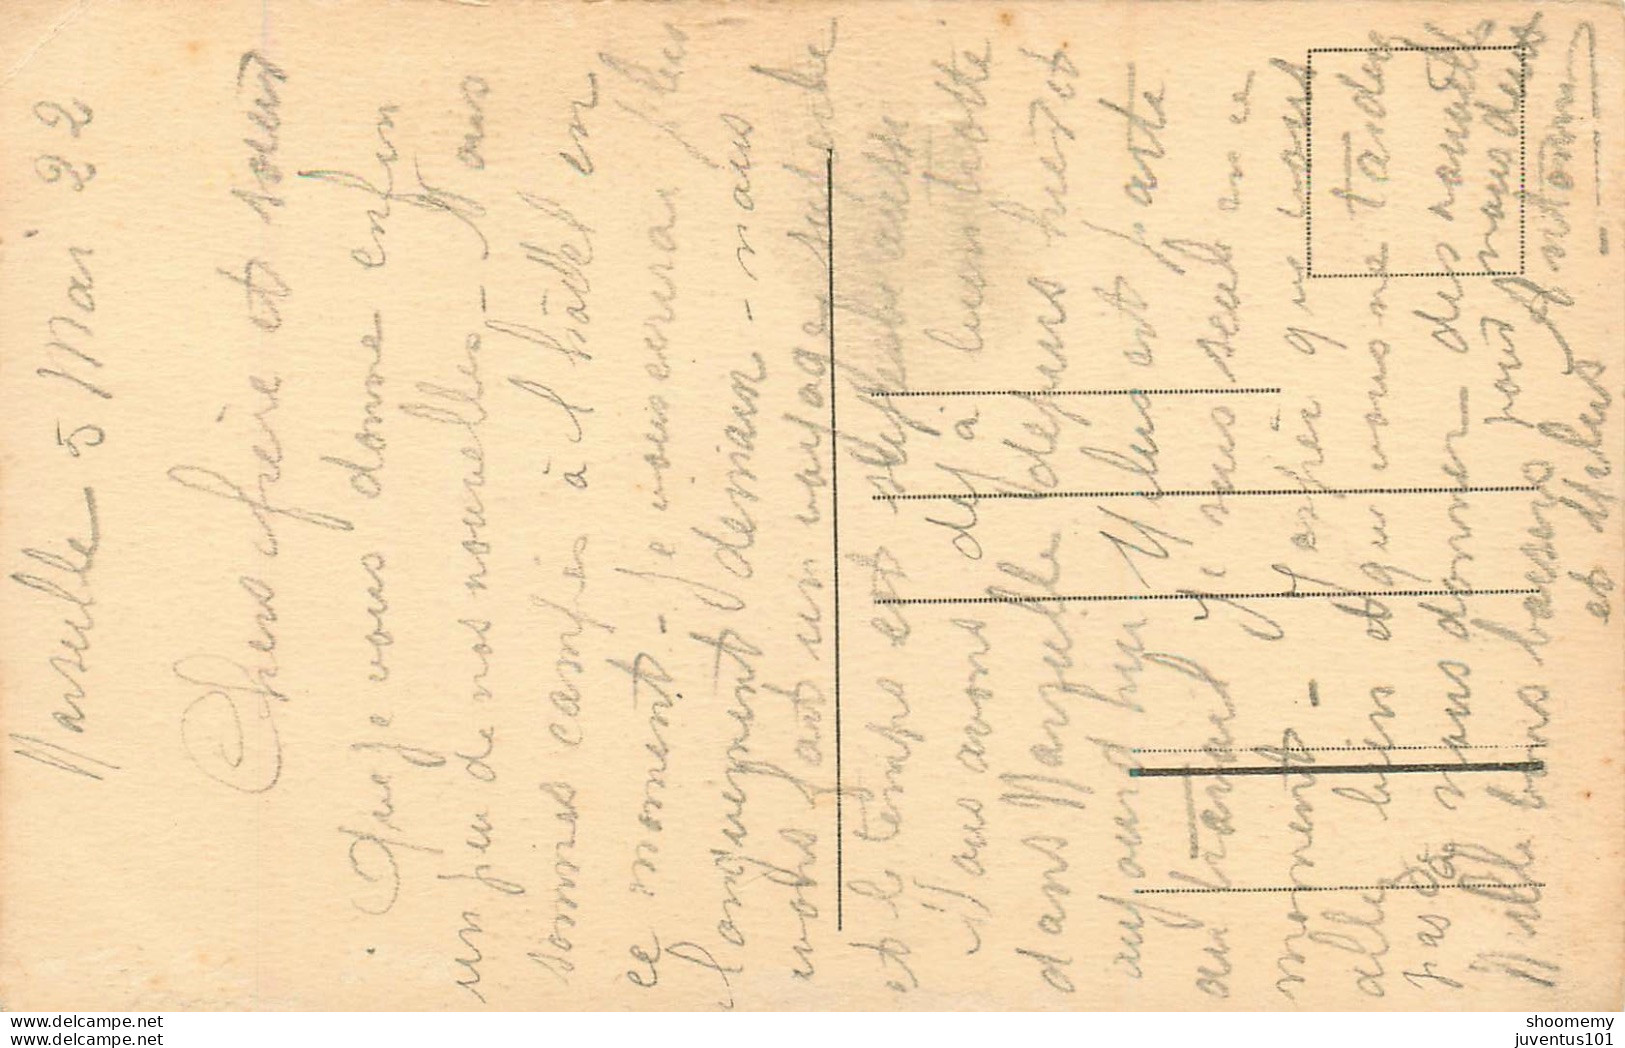 Marseille 5 Mai 22
Chers frère et soeur
Que je vous donne enfin
un peu de nos nouvelles - Nous
sommes campés à l'hôtel en
ce moment - Je vous écrirai plus
longuement demain - nous
avons fait un voyage superbe
et le temps est
Nous avons déjà
dans Marseille depuis hier et
aujourd'hui Yleus est parti
au travail Je suis seule en ce
moment - J'espère que vous
allez bien et que vous ne tardez
pas à nous donner des nouvelles
Mille bons baisers pour vous deux
Antonin
et
www.delcampe.net
www.delcampe.net
shoomemy
juventus101